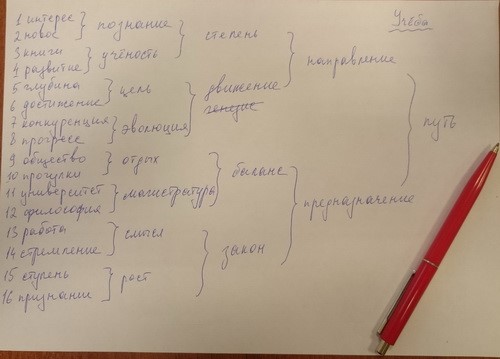 Учёба
1 интерес
2 новое
3 книги
4 развитие
5 глубина
6 достижение
7 конкуренция
8 прогресс
9 общество
10 прогулки
11 университет
12 философия
13 работа
14 стремление
15 ступень
16 признание
познание
учёность
цель
эволюция
отдых
магистратура
смысл
рост
степень
движение
генезис
баланс
закон
направление
предназначение
путь